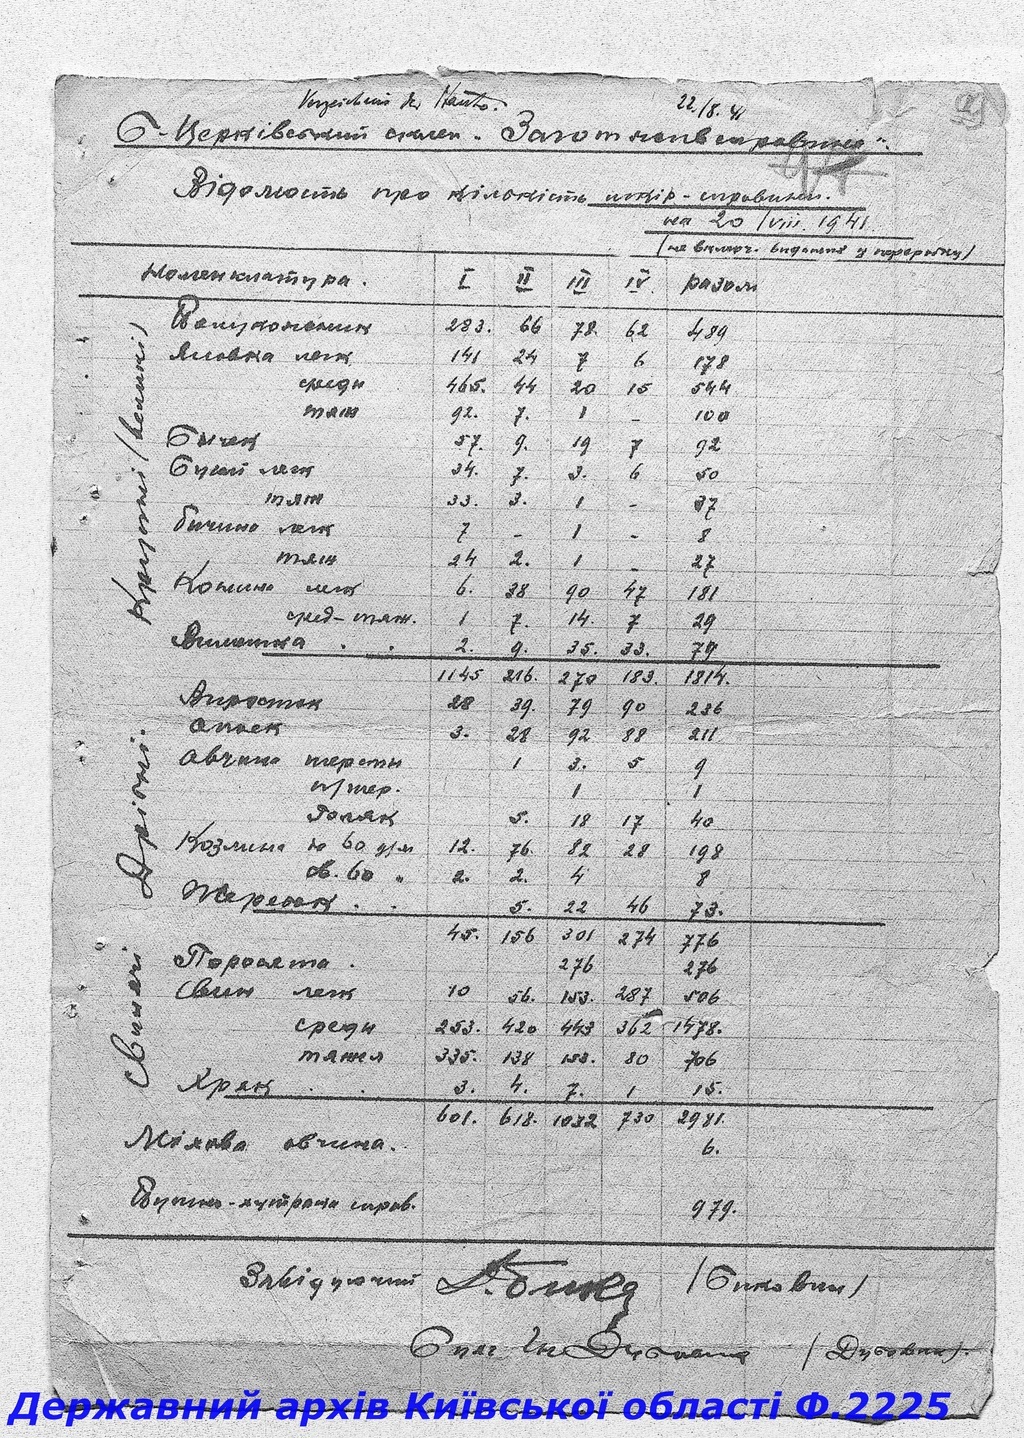 Verzeichnis der Häute.
22./8. 41
Б-Церківський склеп „Заготживсировина".
Відомость про кількість шкір-сировини.
на 20/VIII. 1941.
(не включ. видання у переробку)
Номенклатура. I II III IV. разом
Крупні (великі)
Полукожник 283. 66 78. 62 489
Яловка легк 141 24 7 6 178
средн 465. 44 20 15 544
тяж 92. 7. 1 - 100
Бичек 57. 9. 19 7 92
Бугай легк 34. 7. 3. 6 50
тяж 33. 3. 1 - 37
Бичина легк 7 - 1 - 8
тяж 24 2. 1 - 27
Конина легк 6. 38 90 47 181
сред-тяж. 1 7. 14. 7 29
2. 9. 35. 33. 79
1145 216. 270 183. 1814.
Дрібні.
Виросток 28 39. 79 90 236
Опоек 3. 28 92 88 211
Овчина шерстн 1 3. 5 9
п/шер. 1 1
Голяк 5. 18 17 40
Козлина до 60 д/м 12. 76. 82 28 198
св. 60 „ 2. 2. 4 8
Жеребок . . 5. 22 46 73.
45. 156 301 274 776
Свинячі
Поросята . 276 276
Свин легк 10 56. 153. 287 506
средн 253. 420 443 362 1478.
тяжел 335. 138 153. 80 706
Хряк . . 3. 4. 7. 1 15.
601. 618. 1032 730 2981.
Міхова овчина. 6.
Пушно-хутрова сиров. 979.
Завідуючий (Биковин)
Держaвний архів Київської області Ф.2225